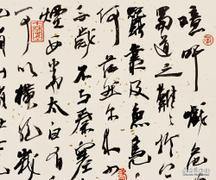 噫吁戲危
蜀道之難難於
蠶叢及魚鳧
何茫然爾來
歲不与秦塞
煙西當太白有
可以橫絕峨